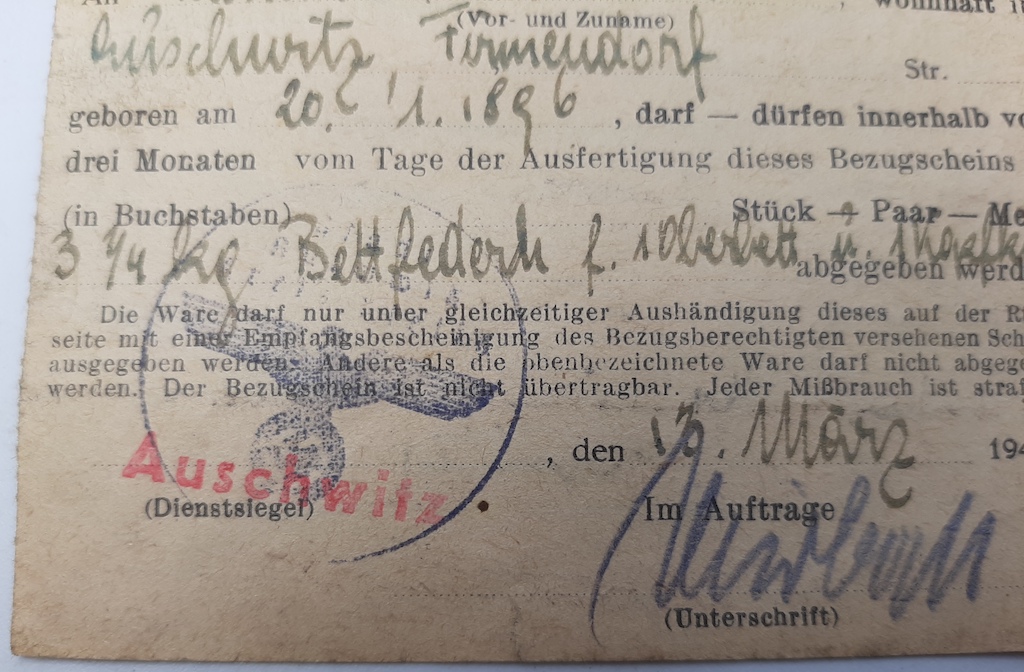 (Vor- und Zuname) , wohnhaft i
Auschwitz, Firmendorf Str.
geboren am 20. 1. 1896 , darf — dürfen innerhalb vo
drei Monaten vom Tage der Ausfertigung dieses Bezugscheins
(in Buchstaben) Stück — Paar — Me
3 1/4 kg. Bettfedern f. 1 Oberbett u. abgegeben werd
Die Ware darf nur unter gleichzeitiger Aushändigung dieses auf der R
seite mit einer Empfangsbescheinigung des Bezugsberechtigten versehenen Sch
ausgegeben werden. Andere als die obenbezeichnete Ware darf nicht abgege
werden. Der Bezugschein ist nicht übertragbar. Jeder Mißbrauch ist straf
Auschwitz , den 13. März 194
(Dienstsiegel) Im Auftrage
(Unterschrift)